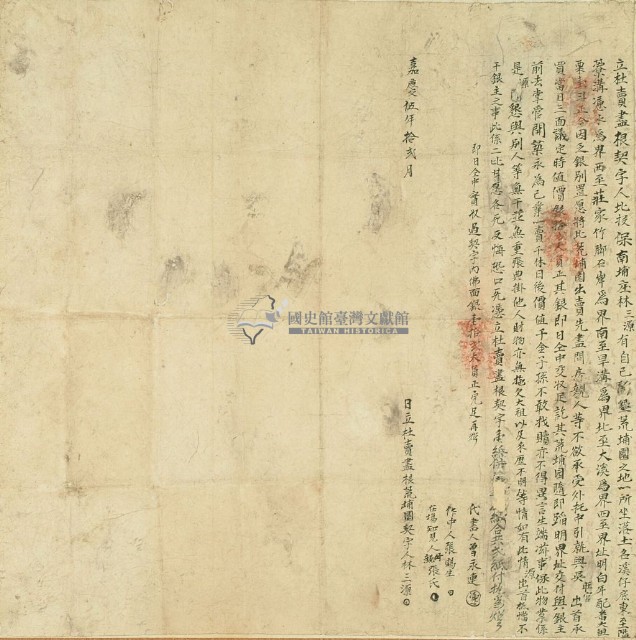 立杜賣盡根契字人比投保南埔庄林三源有自己荒埔園之地一所坐落土名溪仔底東至
溝透水為界西至莊家竹腳石岸為界南至旱溝為界北至大溪為界四至界址明白年配
正今因乏銀別置愿將此荒埔園出賣先盡問房親人等不欲承受外托中引就與吳 出首承
買當日三面議定時值價銀拾 大員正其銀即日仝中交收足訖其荒埔園隨即踏明界址交付與銀主
前去掌管開築永為己業一賣千休日後價值千金子孫不敢找贖亦不得異言生端滋事保此物業係
是 與別人等無干並無重張典掛他人財物亦無拖欠大租以及來歷不明等情如有此情 出首抵擋不
干銀主之事此係二比甘愿各無反悔恐口無憑立杜賣盡根契字壹紙 合共 紙付執為炤
即日仝中實收過契字內佛面銀 大員正完足再炤
代書人曾永連
作中人張賜生
在場知見人 張氏
嘉慶伍年拾弍月 日立杜賣盡根荒埔園契字人林三源
國史館臺灣文獻館
TAIWAN HISTORICA